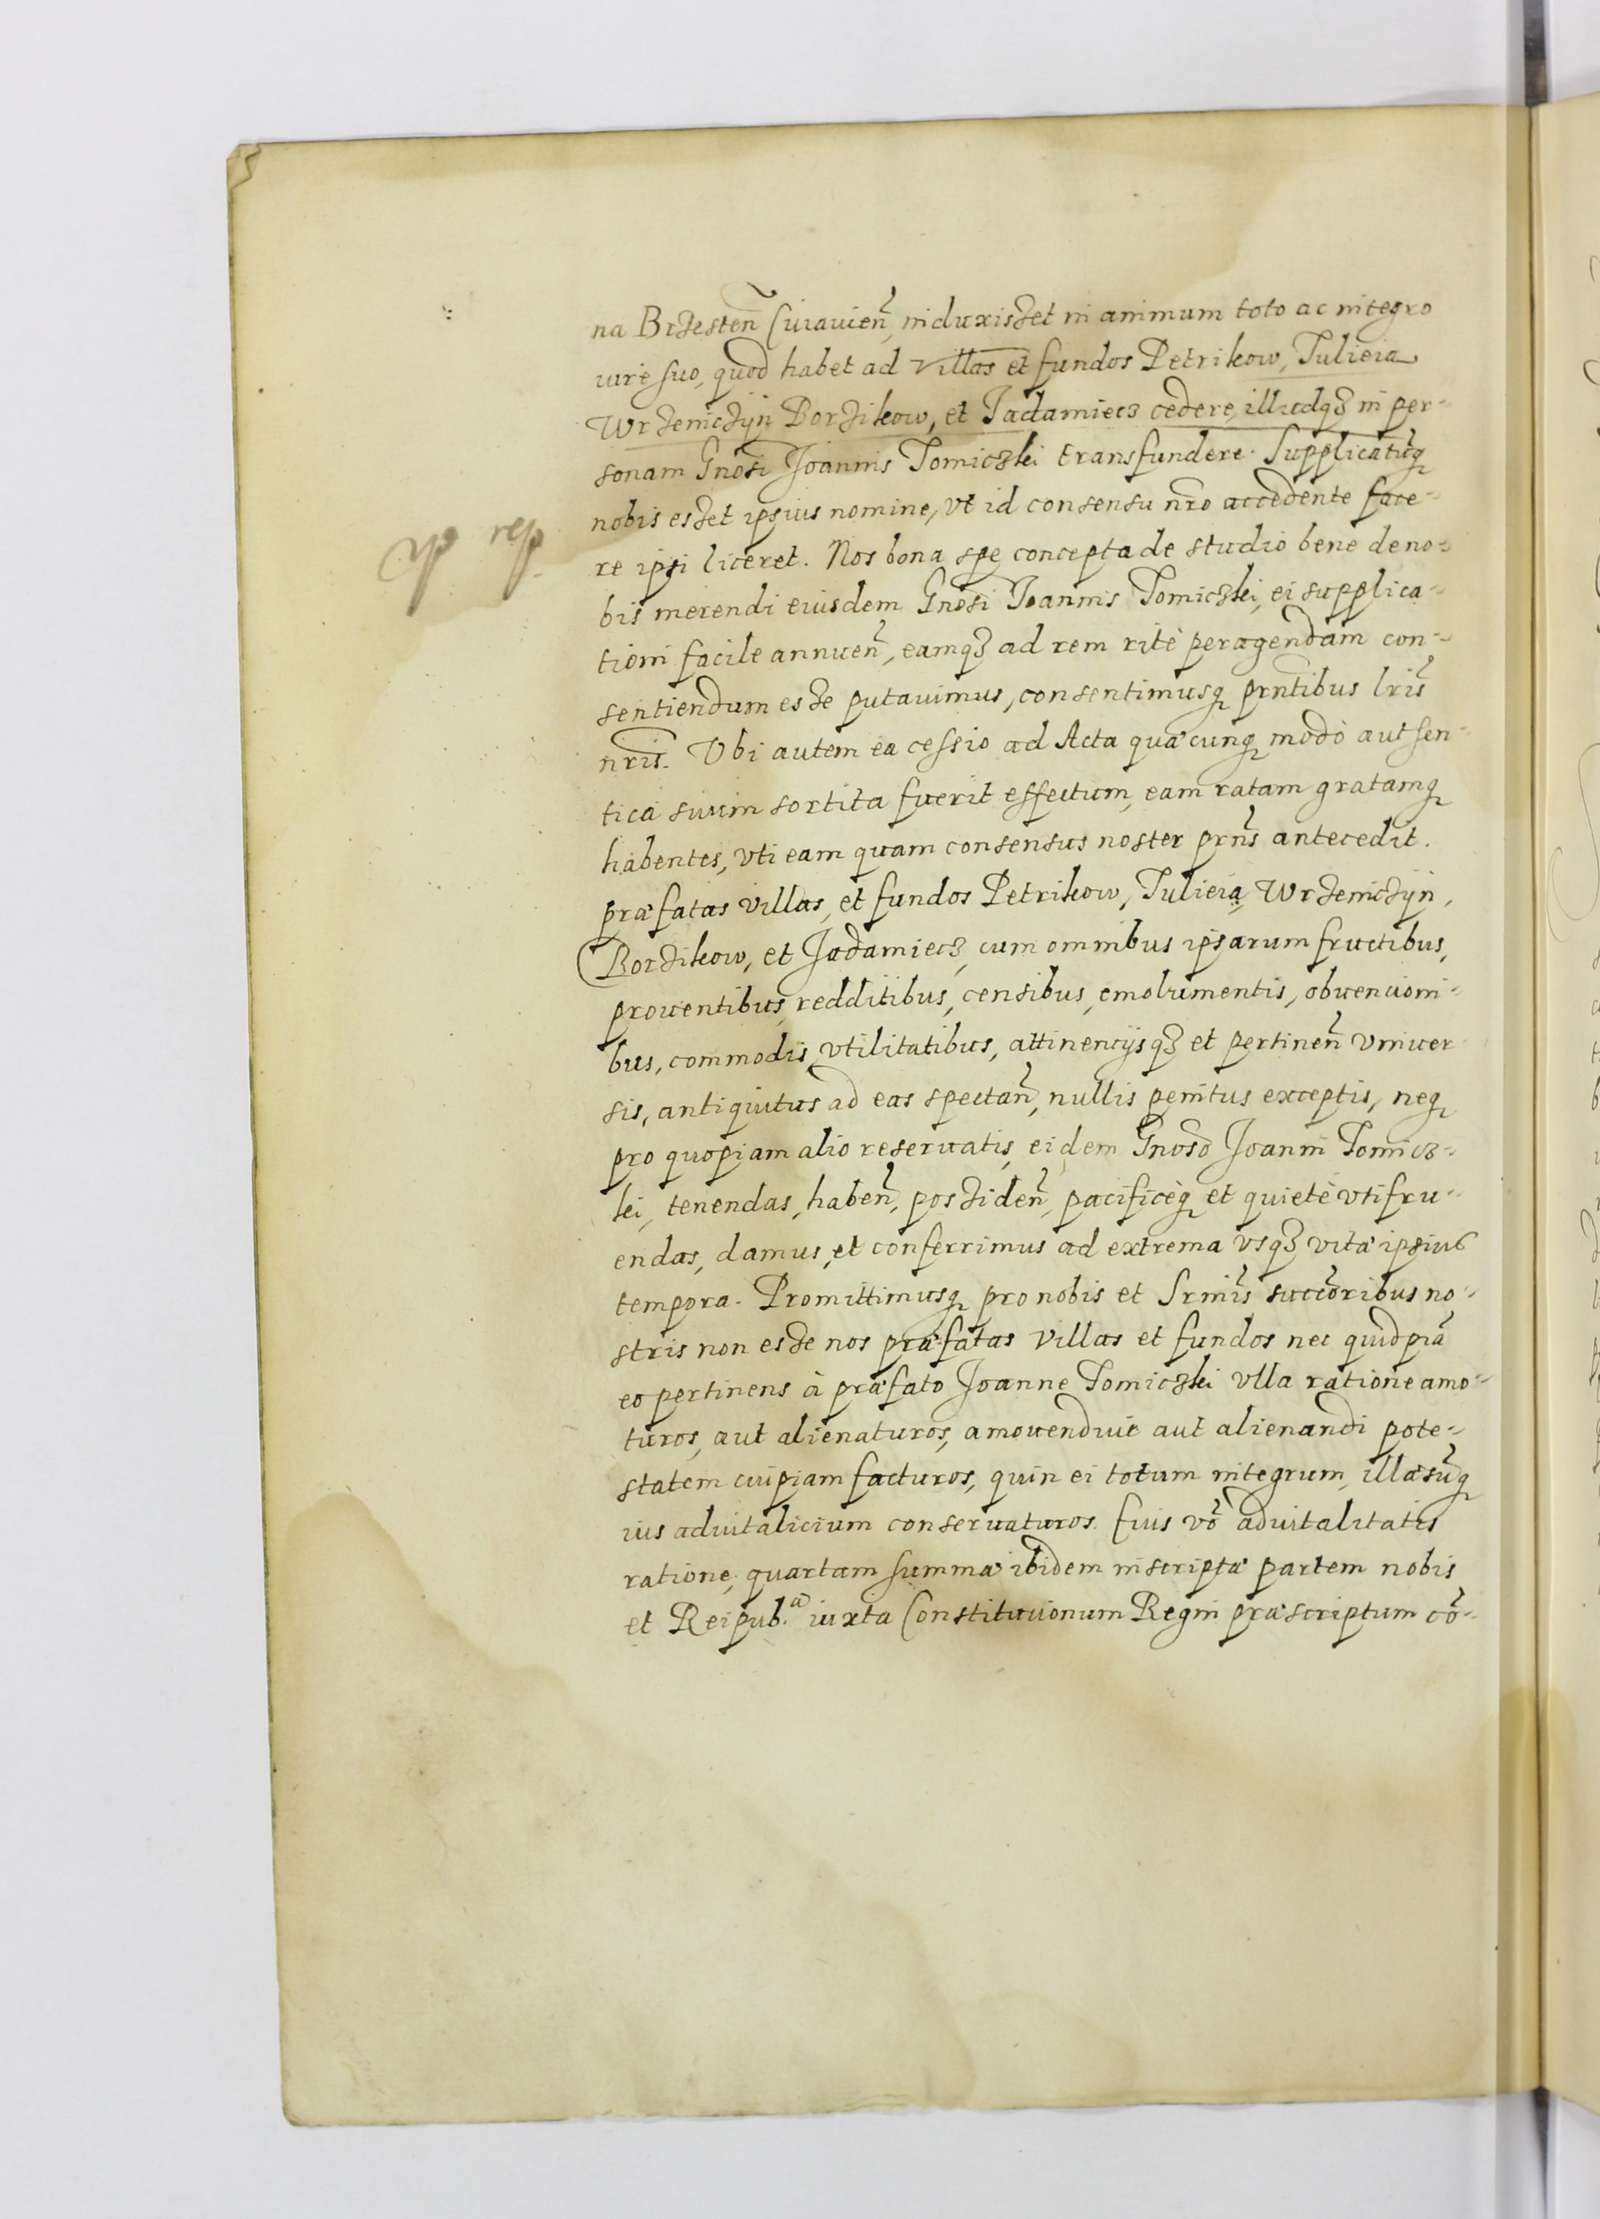 na Brzesteñ Cuiauieñ, induxisset in animum toto ac integro
iure suo, quod habet ad villas et fundos Petrikow, Tulieia
Wrzeniczÿn Borzikow, et Jadamiecz cedere, illudq3 in per-
sonam Gnosi Joannis Tomiczki transfundere. Supplicatũq
nobis esset ipsius nomine, vt id consensu nro accedente face-
re ipsi liceret. Nos bona spe concepta de studio bene de no-
bis merendi eiusdem Gnosi Joannis Tomiczki, ei supplica-
tioni facile annueñ, eamq3 ad rem ritè peragendam con-
sentiendum esse putauimus, consentimusq prntibus lris
nris. Vbi autem ea cessio ad Acta quæcunq modò autsen-
tica suum sortita fuerit effectum, eam ratam gratamq
habentes, vti eam quam consensus noster prns antecedit.
præfatas villas, et fundos Petrikow, Tulieia, Wrzeniczÿn,
Borzikow, et Jadamiecz, cum omnibus ipsarum fructibus,
prouentibus, redditibus, censibus, emolumentis, obuencioni-
bus, commodis, vtilitatibus, attinencijsq3 et pertineñ vniuer
sis, antiquitus ad eas spectañ, nullis penitus exceptis, neq
pro quopiam alio reseruatis, eidem Gnoso Joanni Tomicz-
ki, tenendas, habeñ, possideñ, pacificèq et quietè vtifru-
endas, damus, et conferrimus ad extrema vsq3 vitæ ipsius
tempora. Promittimusq pro nobis et Srmis succoribus no-
stris non esse nos præfatas villas et fundos nec quidpiã
eo pertinens à præfato Joanne Tomiczki vlla ratione amo-
turos, aut alienaturos, amouendiue aut alienandi pote-
statem cuipiam facturos, quin ei totum integrum, illæsũq
ius aduitalicium conseruaturos. Eius võ aduitalitatis
ratione, quartam summæ ibidem inscriptæ partem nobis
et Reipub.æ iuxta Constitucionum Regni præscriptum cõ-